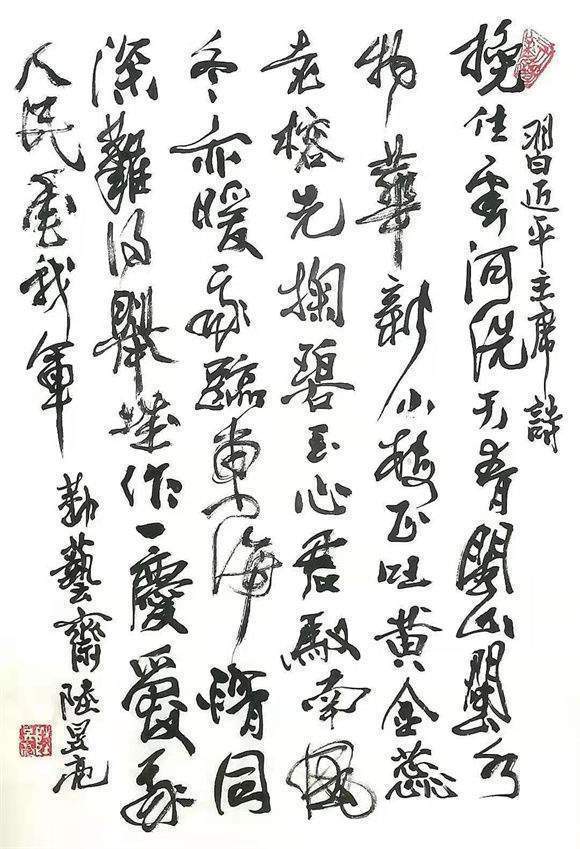 習近平主席詩
挽住雲河洗天青閩山閩水
物華新小梅正吐黄金蕊
老榕先掬碧玉心君馭南風
冬亦暖我臨東海情同
深難得舉城作一慶愛我
人民愛我軍
勤藝齋陸昱亮